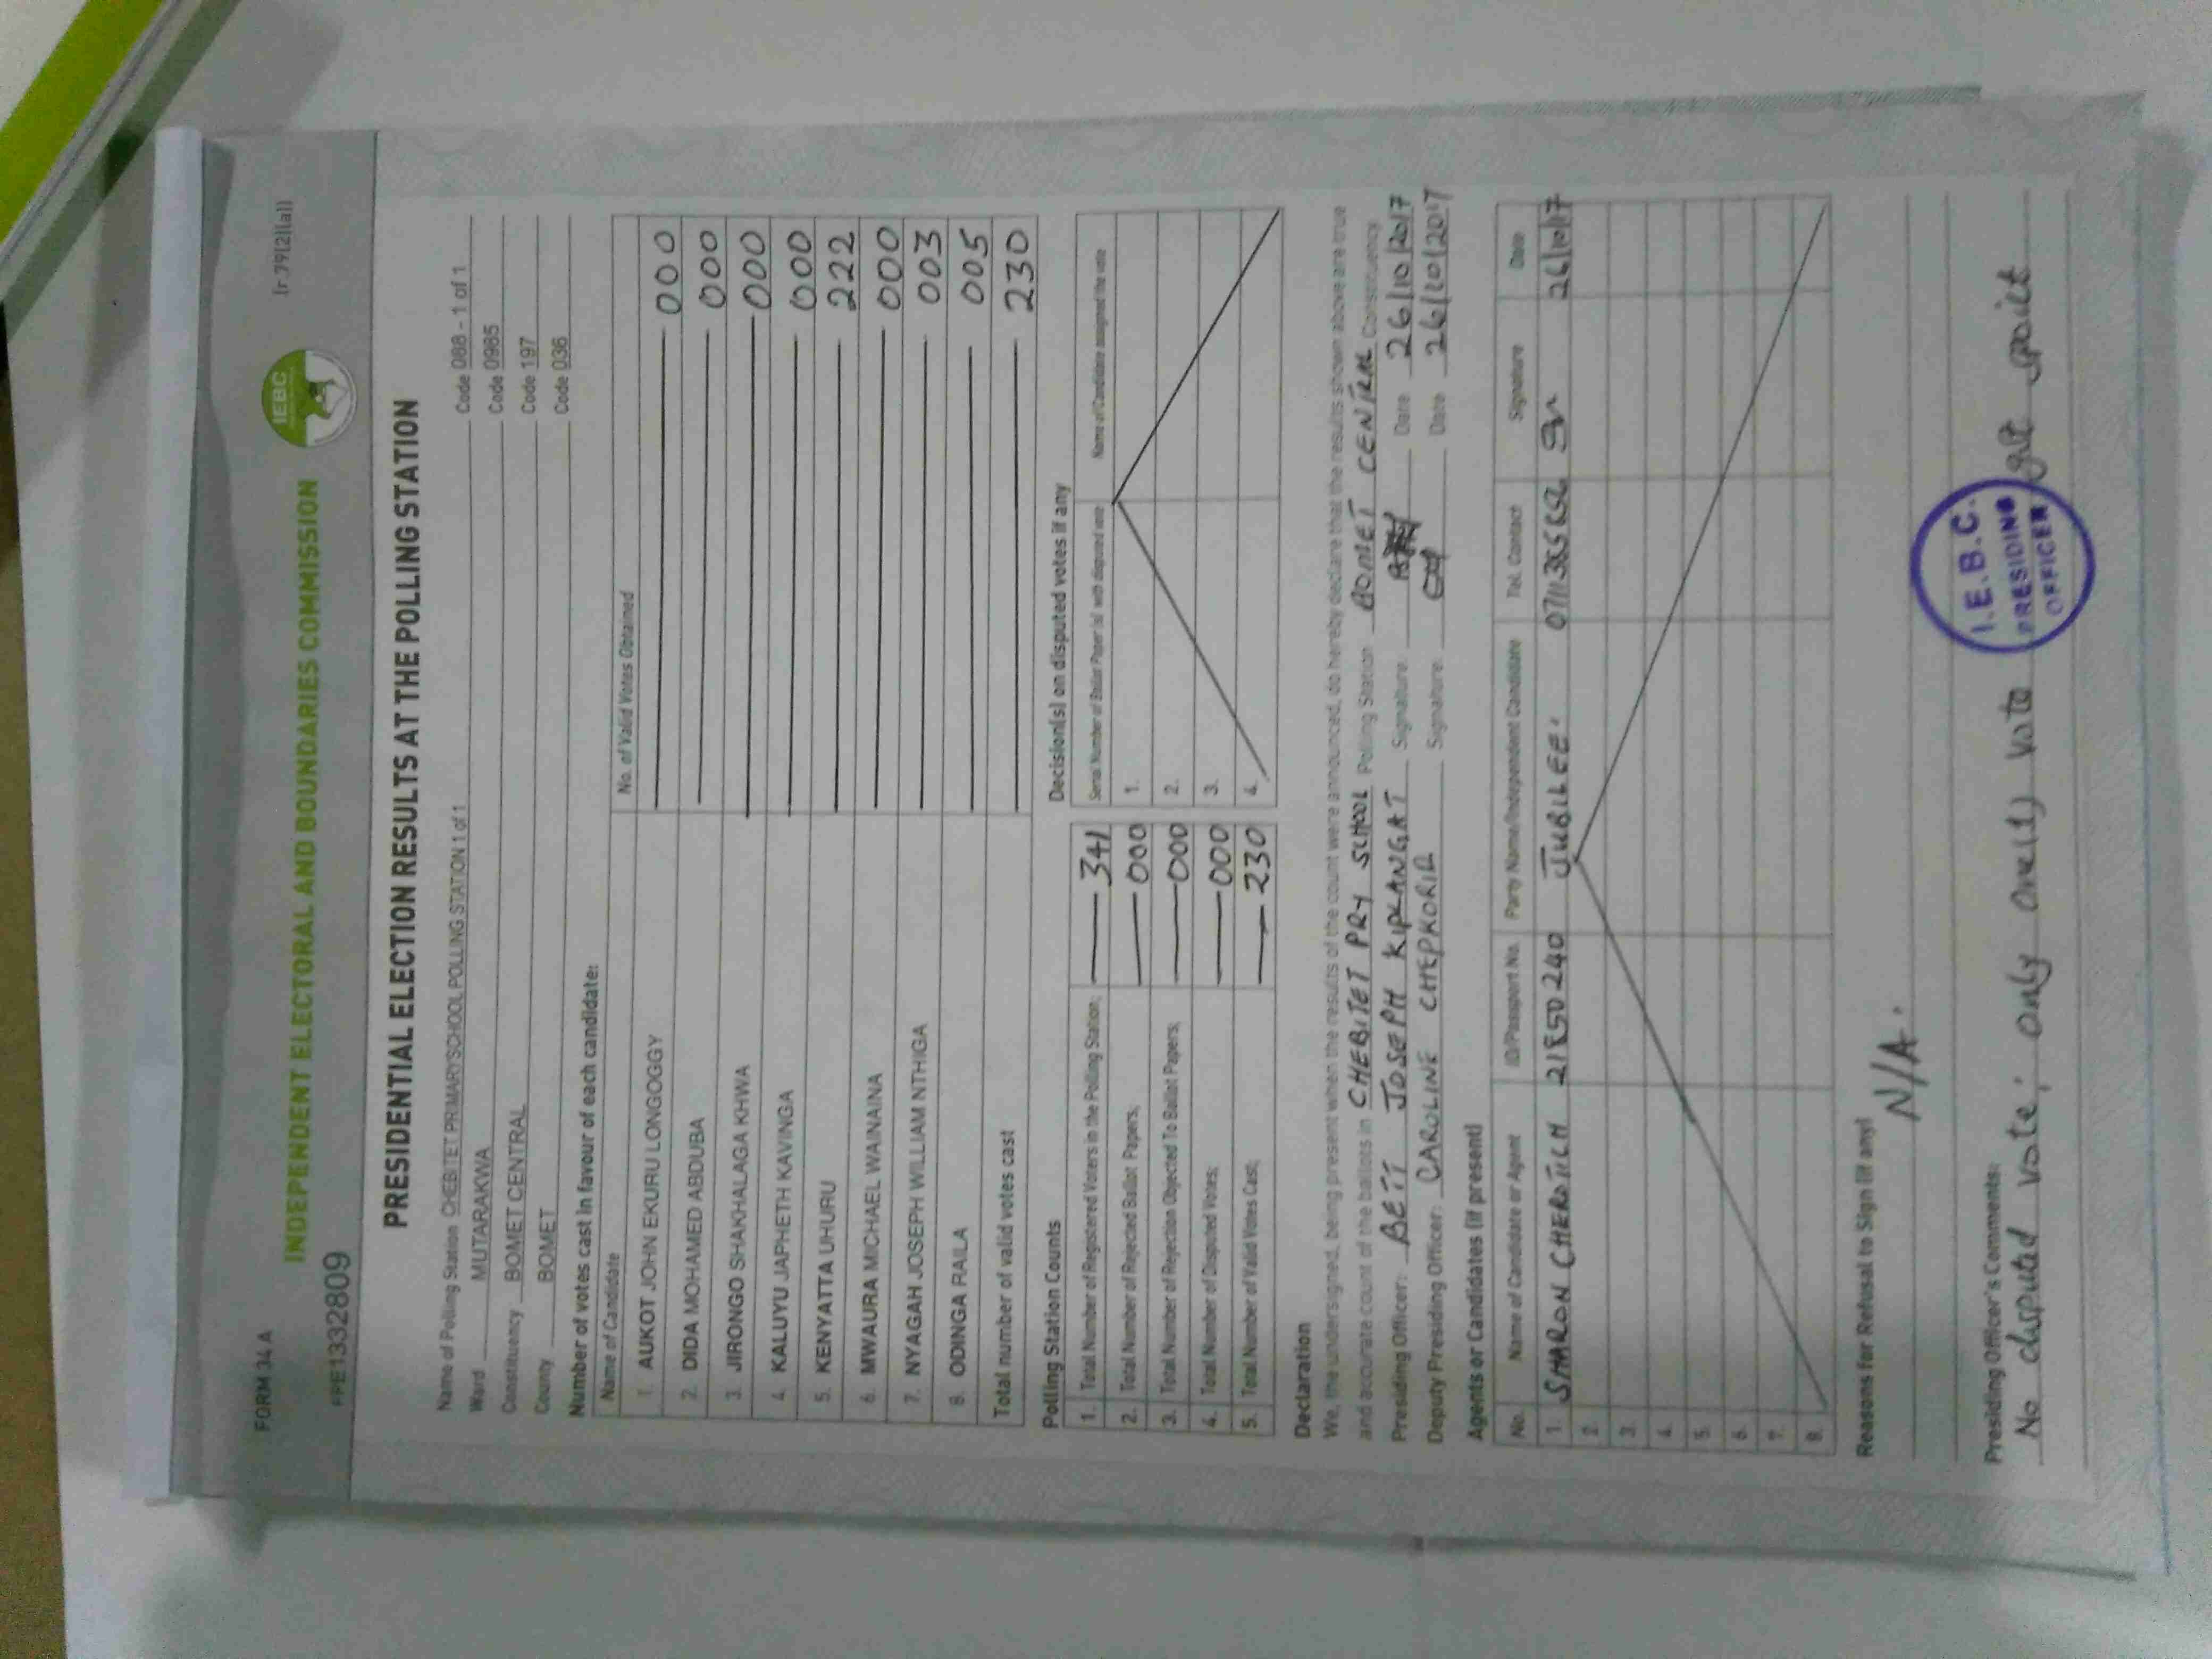 FORM 34 A
(r.79(2)(a))
INDEPENDENT ELECTORAL AND BOUNDARIES COMMISSION
IEBC
PRESIDENTIAL ELECTION RESULTS AT THE POLLING STATION
Name of Polling Station CHEBITET PRIMARY SCHOOL POLLING STATION 1 of 1 Code 088 - 1 of 1
Ward MUTARAKWA Code 0985
Constituency BOMET CENTRAL Code 197
County BOMET Code 036
Number of votes cast in favour of each candidate:
Name of Candidate No. of Valid Votes Obtained
1. AUKOT JOHN EKURU LONGOGGY 000
2. DIDA MOHAMED ABDUBA 000
3. JIRONGO SHAKHALAGA KHWA 000
4. KALUYU JAPHETH KAVINGA 000
5. KENYATTA UHURU 222
6. MWAURA MICHAEL WAINAINA 000
7. NYAGAH JOSEPH WILLIAM NTHIGA 003
8. ODINGA RAILA 005
Total number of valid votes cast 230
Polling Station Counts
1. Total Number of Registered Voters in the Polling Station; 341
2. Total Number of Rejected Ballot Papers; 000
3. Total Number of Rejection Objected To Ballot Papers; 000
4. Total Number of Disputed Votes; 000
5. Total Number of Valid Votes Cast; 230
Decision(s) on disputed votes if any
Serial Number of Ballot Paper (s) with disputed vote Name of Candidate assigned the vote
1.
2.
3.
4.
Declaration
We, the undersigned, being present when the results of the count were announced, do hereby declare that the results shown above are true
and accurate count of the ballots in CHEBITET PRY SCHOOL Polling Station BOMET CENTRAL Constituency
Presiding Officer: BETT JOSEPH KIPLANGAT Signature: Date 26/10/2017
Deputy Presiding Officer: CAROLINE CHEPKORIR Signature: Date 26/10/2017
Agents or Candidates (if present)
No. Name of Candidate or Agent ID/Passport No. Party Name/Independent Candidate Tel. Contact Signature Date
1. SHARON JUBILEE. 26/10/17
2.
3.
4.
5.
6.
7.
8.
Reasons for Refusal to Sign (if any)
N/A.
Presiding Officer's Comments:
No disputed vote; only one(1) vote got spoilt
I.E.B.C.
PRESIDING
OFFICER